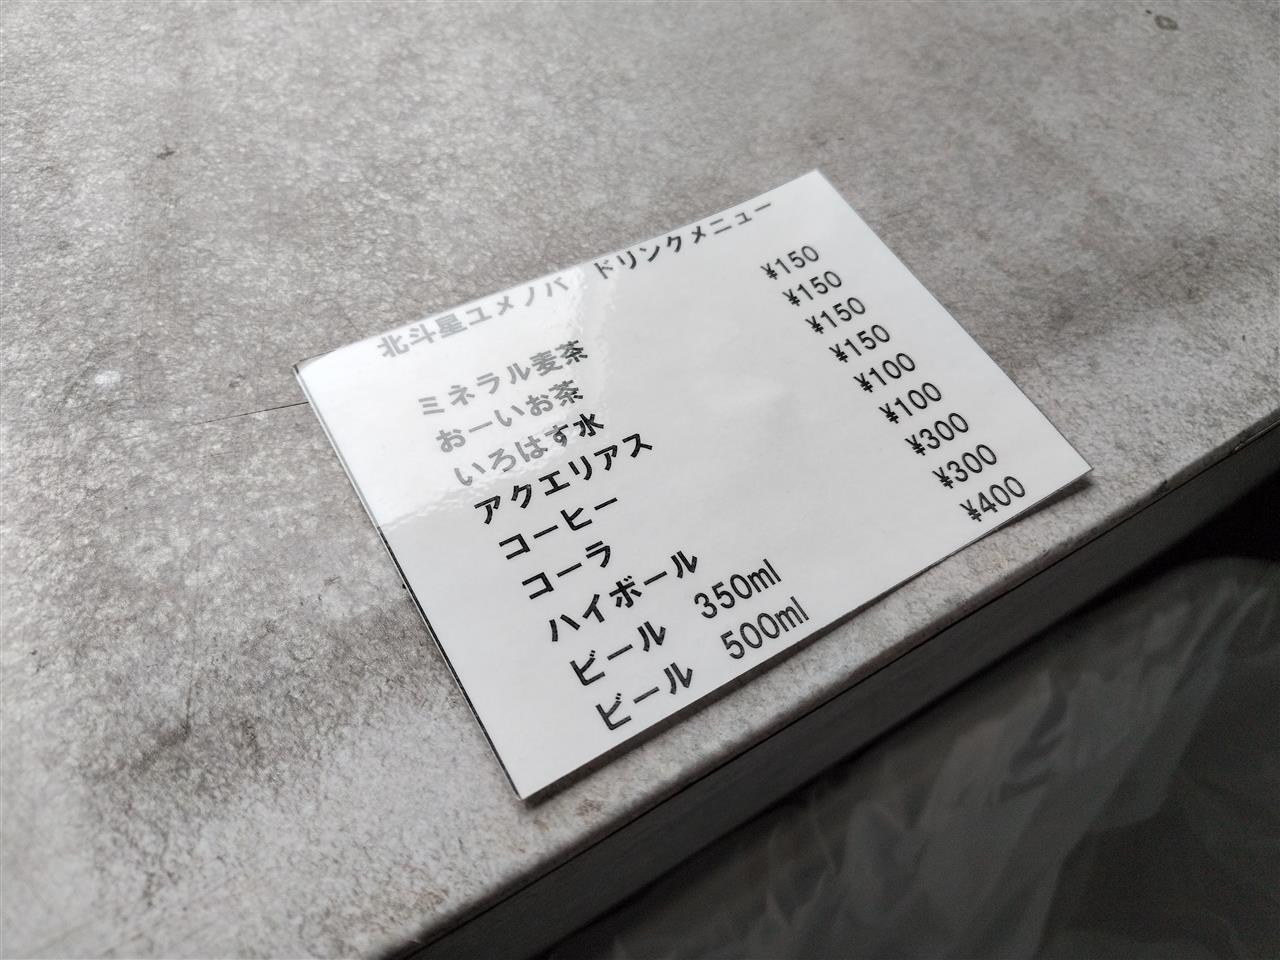 北斗星ユメノバ ドリンクメニュー
ミネラル麦茶 ¥150
おーいお茶 ¥150
いろはす水 ¥150
アクエリアス ¥150
コーヒー ¥100
コーラ ¥100
ハイボール ¥300
ビール 350ml ¥300
ビール 500ml ¥400